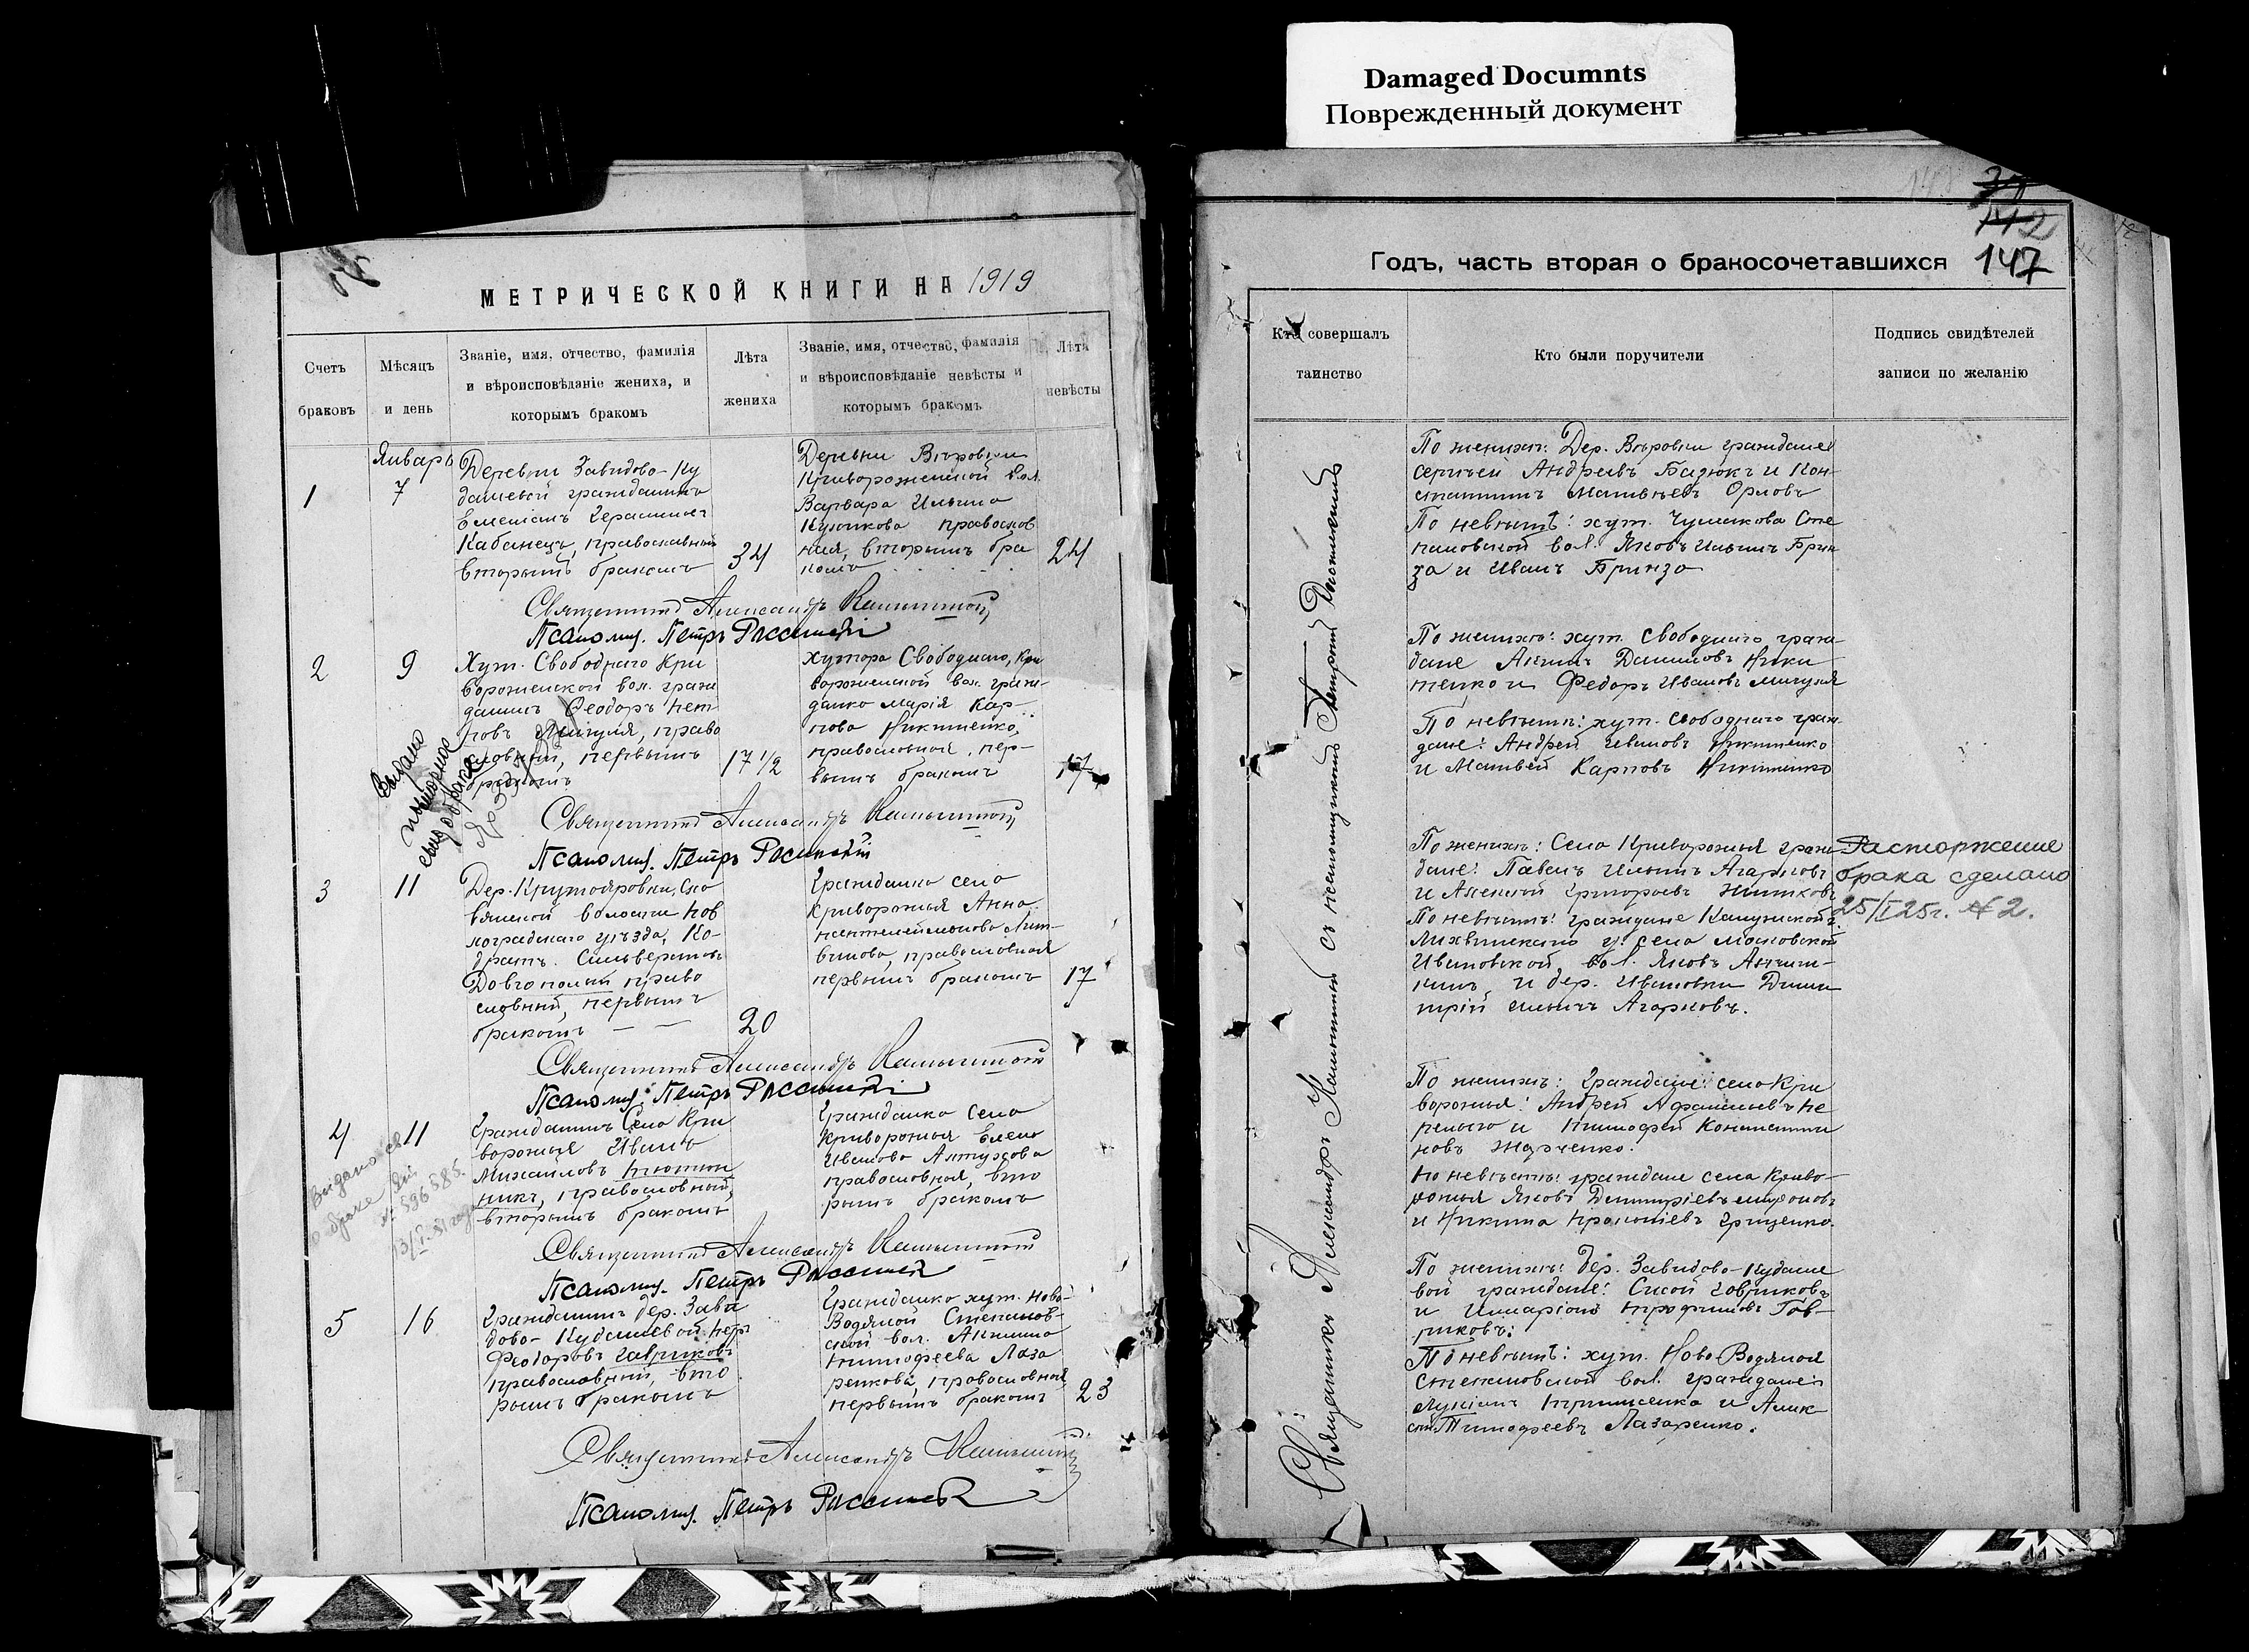 Damaged Documnts
Поврежденный документ
МЕТРИЧЕСКОЙ КНИГИ НА 1919
Счетъ браковъ
Мѣсяцъ и день
Званіе, имя, отчество, фамилія
и вѣроисповѣданіе жениха, и
которымъ бракомъ
Лѣта жениха
Званіе, имя, отчество, фамилія
и вѣроисповѣданіе невѣсты и
которымъ бракомъ
Лѣта невѣсты
1
Январь
7
Деревни Завидово-Ку
дашевой гражданинъ
Кабанецъ, православный
вторымъ бракомъ
34
Деревни Вѣровки
Криворожской вол.
Варвара Ильина
православ
ная, вторымъ бра
комъ
24
Священникъ Александръ
Псаломщ. Петръ
2
9
Хут. Свободнаго Кри
ворожской вол. граж
данинъ Феодоръ Пет
ровъ Мигуля, право
славный, первымъ
бракомъ
17 1/2
Хутора Свободнаго, Кри
ворожской вол. граж-
данка Марія Кар-
пова Никитенко,
православная, пер-
вымъ бракомъ
17
Выдано
повторное
свид о браке
Священникъ Александръ
Псаломщ. Петръ
3
11
Дер. Крутояровки, Сла
вянской волости Пав
лоградскаго уѣзда, Ко-
дратъ Сильверстовъ
Довгополый право
славный, первымъ
бракомъ
20
Гражданка села
Криворожья Анна
Пантелеймонова Лит-
винова, православная
первымъ бракомъ
17
Священникъ Александръ
Псаломщ. Петръ
4
11
Гражданинъ Села Кри
ворожья Иванъ
Михаиловъ Тютюн
никъ, православный,
вторымъ бракомъ
Гражданка села
Криворожья Елена
Иванова Алтухова
православная, вто
рымъ бракомъ
Выдано св
о браке
Священникъ Александръ
Псаломщ. Петръ
5
16
Гражданинъ дер. Зави
дово-Кудашевой Петръ
Феодоровъ Гавриковъ
православный, вто
рымъ бракомъ
Гражданка хут. Ново-
Водяной Степанов-
ской вол. Акилина
Тимофеева Лаза
ренкова, православная,
первымъ бракомъ
23
Священникъ Александръ
Псаломщ. Петръ
Годъ, часть вторая о бракосочетавшихся
142
147
Кто совершалъ
таинство
Кто были поручители
Подпись свидѣтелей
записи по желанію
Священникъ Александръ съ псаломщикомъ Петромъ
По женихѣ: Дер. Вѣровки граждане
Сергѣй Андреевъ Базюкъ и Кон-
стантинъ Матвѣевъ Орловъ
По невѣстѣ: хут. Чумакова Сте
пановской вол. Яковъ Ильинъ Брин
за и Иванъ Бринза
По женихѣ: хут. Свободнаго граж-
дане Акимъ Даниловъ Ники
тенко и Федоръ Ивановъ Мигуля
По невѣстѣ: хут. Свободнаго граж-
дане: Андрей Ивановъ Никитенко
и Матвей Карповъ Никитенко
По женихѣ: Села Криворожья граж
дане: Павелъ Ильинъ Агарковъ
и Алексѣй Григорьевъ
По невѣстѣ: граждане Калужской г.
Лихвинскаго у. села
Ивановской вол. Яковъ
и дер. Ивановки Дими
трій Ильичъ Агарковъ.
Расторжение
брака сделано
25/I 25г. № 2.
По женихѣ: Граждане: села Кри
ворожья: Андрей Афанасьевъ Пе
и Тимофей Константи
новъ Марченко.
По невѣстѣ: граждане села Криво-
рожья Яковъ Димитріевъ Мироновъ
и Никита Прокопіевъ Гриценко.
По женихѣ: дер. Завидово-Кудаше
вой граждане: Сисой Гавриковъ
и Иларіонъ Трофимовъ Гав-
риковъ:
По невѣстѣ: хут. Ново-Водяной
Степановской вол. граждане:
Лукіанъ и Алек
сѣй Тимофеевъ Лазаренко.